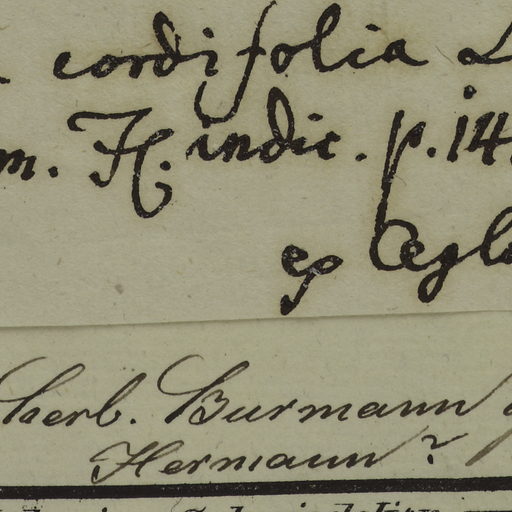 cordifolia L
m. Fl. indic. p. 14
ex
Herb. Burmann
Hermann?